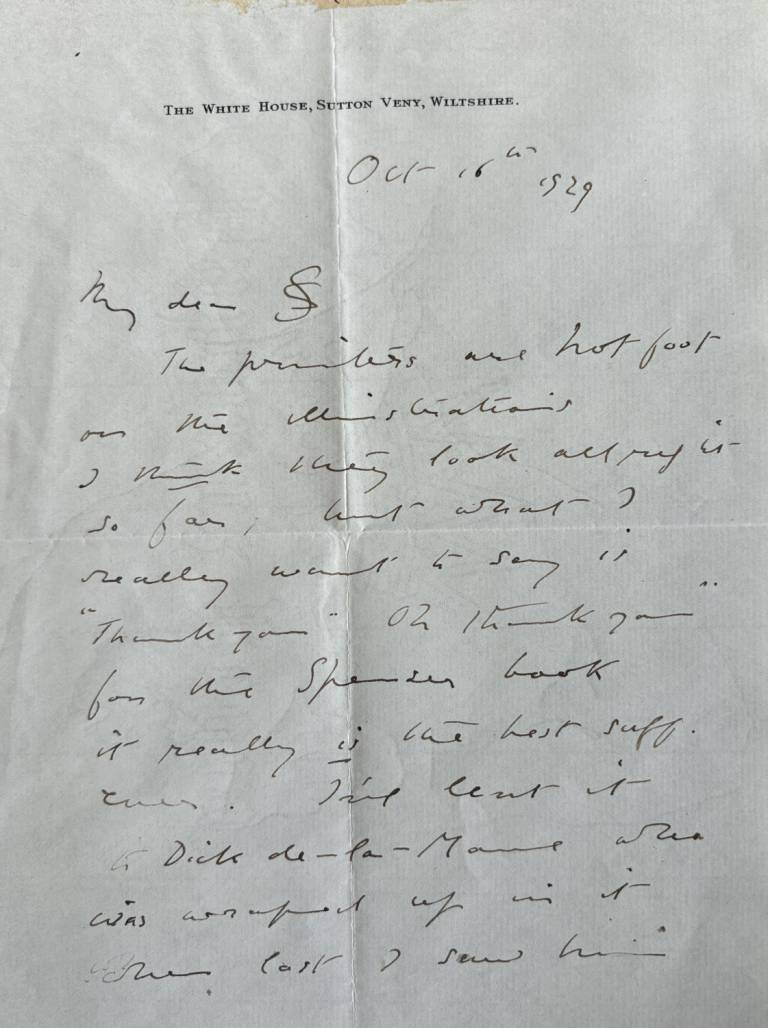 THE WHITE HOUSE, SUTTON VENY, WILTSHIRE.
Oct 16th 1929
My dear SS
The printers are hot foot
on the illustrations
I think they look allright
so far, but what I
really want to say is
"Thank you" Oh thank you"
for the Spenser book
it really is the best
ever. I've lent it
to Dick de-la-Mare who
was wrapped up in it
when last I saw him